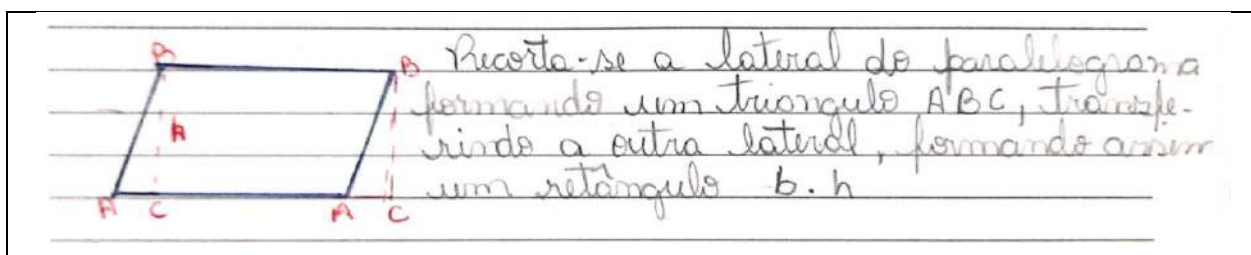 B
B
h
A C A C
Recorta-se a lateral do paralelograma
formando um triangulo ABC, transfe-
rindo a outra lateral, formando assim
um retângulo b.h